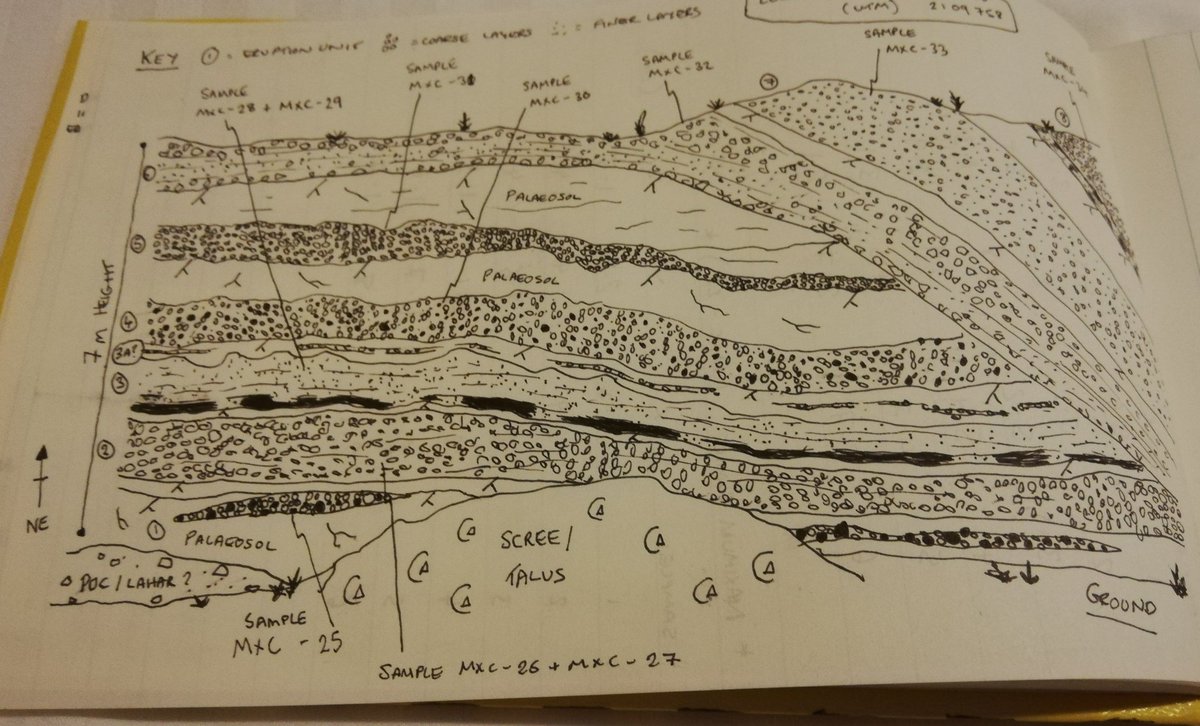 (UTM) 2109768
KEY ① = ERUPTION UNIT = COARSE LAYERS = FINER LAYERS
SAMPLE
MXC-28 + MXC-29
SAMPLE
MXC-31
SAMPLE
MXC-30
SAMPLE
MXC-32
SAMPLE
MXC-33
SAMPLE
⑦
⑧
⑥
PALAEOSOL
⑤
PALAEOSOL
④
3A?
③
②
7 M HEIGHT
NE
①
PALAEOSOL
PDC/LAHAR?
SCREE/
TALUS
GROUND
SAMPLE
MXC-25
SAMPLE MXC-26 + MXC-27